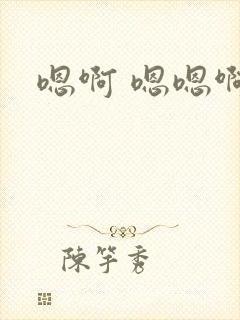 嗯啊 嗯嗯啊
陳竽秀